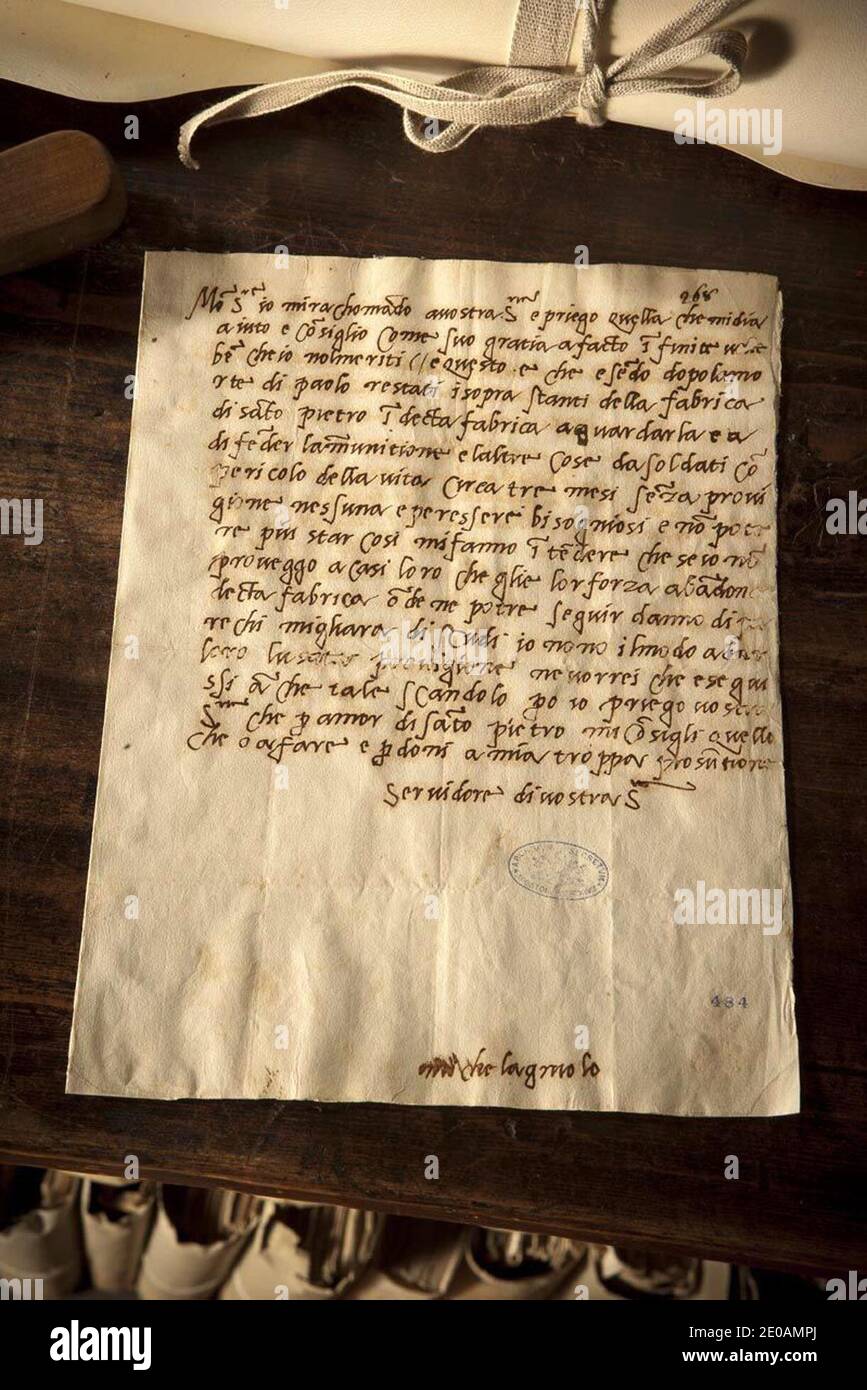 268
Mo͂ S.re io mi racho mado a vostra S.ria e priego quella che mi dia
aiuto e co͂siglio come suo gratia a facto i͂ finite
be͂ che io nol meriti // e questo e che ese͂do dopo la mo
rte di paolo restati i sopra stanti della fabrica
di sa͂to pietro i͂ decta fabrica a guardarla e a
di fe͂der la munitione e laltre cose da soldati co͂
pericolo della vita circa tre mesi se͂za provi
gione nessuna e per essere bisogniosi e no͂ pote
re piu star cosi mi fanno i͂ te͂dere che se io no͂
proveggo a casi loro che gli e lor forza aba͂done
decta fabrica o͂de ne potre seguir danno di
rechi migliara di scudi io non o il modo a
loro la provigione ne vorrei che esegui
ssi a͂ che tale sca͂dolo po io priego vostra
S.ria che p amor di sa͂to pietro mi co͂sigli quello
che o a fare e p doni a mia troppa prosu͂tione
Servidore di vostra S.ria
ARCHIVUM SECRETUM
484
michelagniolo
alamy
Image ID: 2E0AMPJ
www.alamy.com